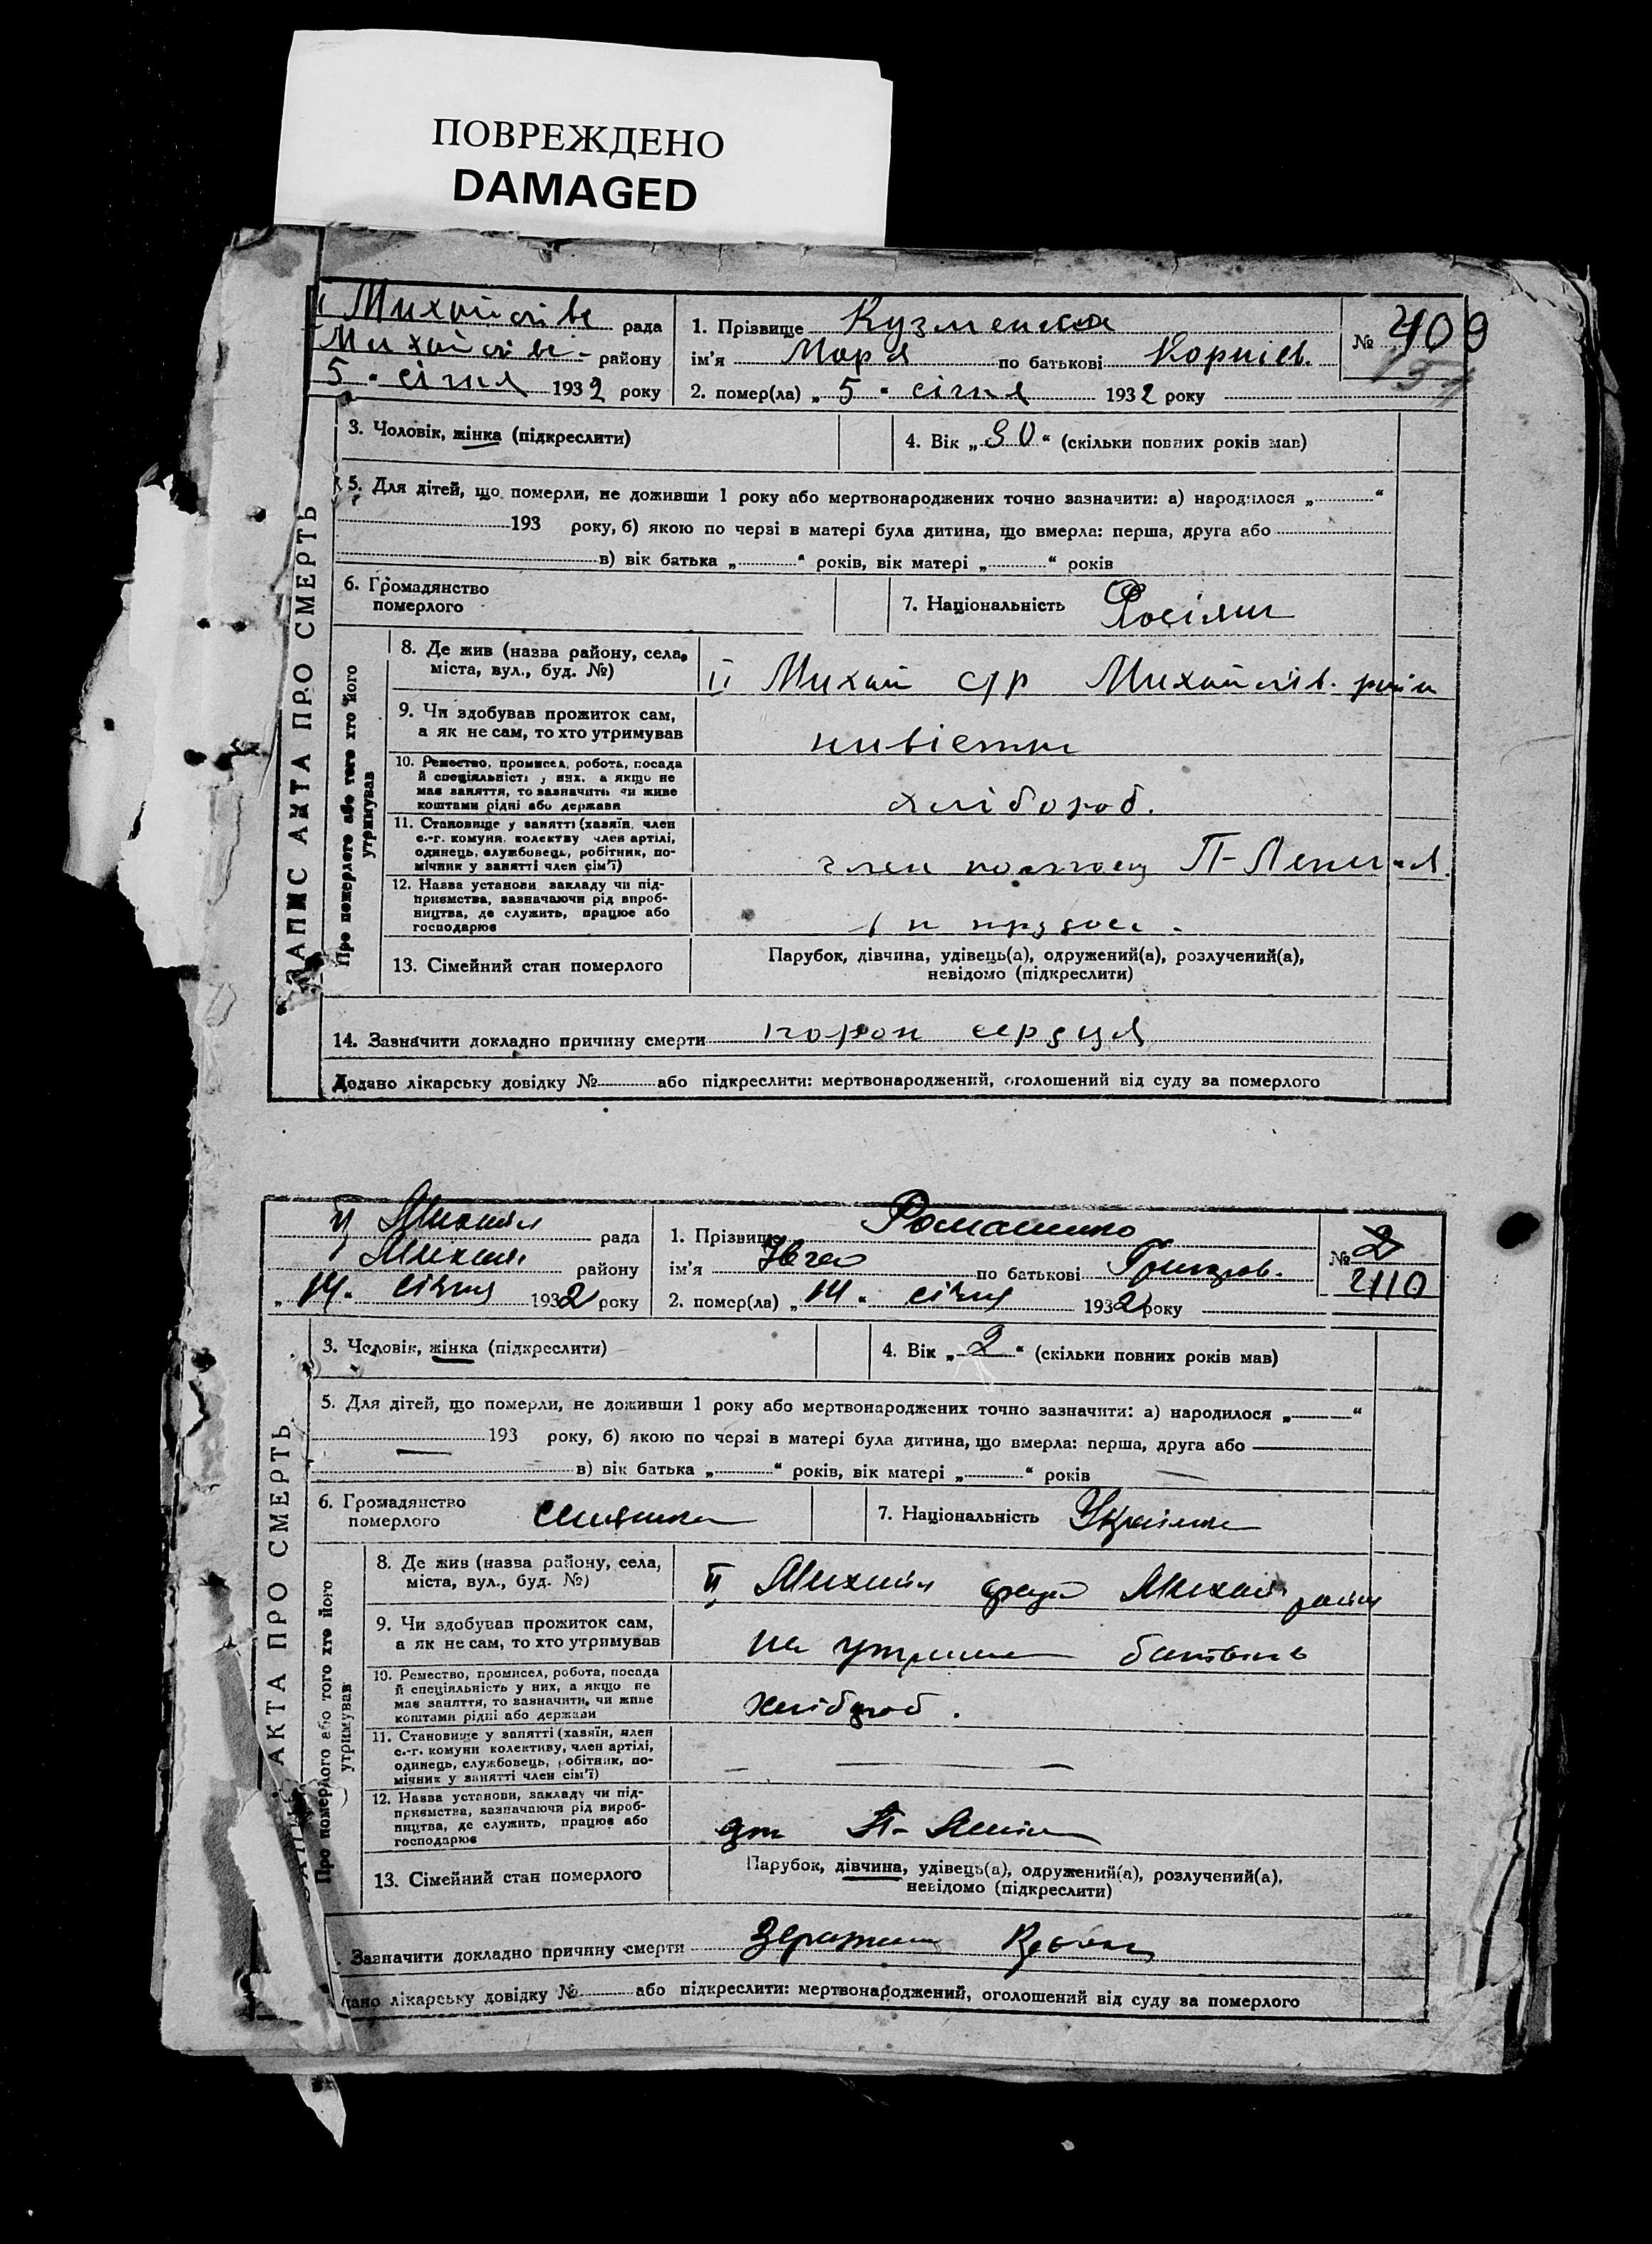 ПОВРЕЖДЕНО
DAMAGED
ЗАПИС АКТА ПРО СМЕРТЬ
рада
району
5 " січня 1932 року
1. Прізвище Кузменкова
ім'я Мар'я по батькові Корніїв.
2. помер(ла) „ 5 " січня 1932 року
№ 409
3. Чоловік, жінка (підкреслити)
4. Вік „ 30 “ (скільки повних років мав)
5. Для дітей, що померли, не доживши 1 року або мертвонароджених точно зазначити: а) народилося „ “
193 року, б) якою по черзі в матері була дитина, що вмерла: перша, друга або
в) вік батька „ “ років, вік матері „ “ років
6. Громадянство
померлого
7. Національність Росіян
Про померлого або того хто його
утримував
8. Де жив (назва району, села,
міста, вул., буд. №)
II Михай с/р Михайлів. район
9. Чи здобував прожиток сам,
а як не сам, то хто утримував
10. Ремество, промисел, робота, посада
й спеціяльність у них, а якщо не
має заняття, то зазначить чи живе
коштами рідні або держави
хлібороб.
11. Становище у занятті (хазяїн, член
с.-г. комуни, колективу член артілі,
одинець, службовець, робітник, по-
мічник у занятті член сім'ї)
член П-Леніна
12. Назва установи закладу чи під-
приємства, зазначаючи рід вироб-
ництва, де служить, працює або
господарює
13. Сімейний стан померлого
Парубок, дівчина, удівець(а), одружений(а), розлучений(а),
невідомо (підкреслити)
14. Зазначити докладно причину смерти порок сердця
Додано лікарську довідку № або підкреслити: мертвонароджений, оголошений від суду за померлого
АКТА ПРО СМЕРТЬ
II Михайл рада
Михайл району
„ 14 " січня 1932 року
1. Прізвище Ромашенко
ім'я по батькові Григоров.
2. помер(ла) „ 14 " січня 1932 року
№ 2
410
3. Чоловік, жінка (підкреслити)
4. Вік „ 2 “ (скільки повних років мав)
5. Для дітей, що померли, не доживши 1 року або мертвонароджених точно зазначити: а) народилося „ “
193 року, б) якою по черзі в матері була дитина, що вмерла: перша, друга або
в) вік батька „ “ років, вік матері „ “ років
6. Громадянство
померлого
7. Національність Українка
Про померлого або того хто його
утримував
8. Де жив (назва району, села,
міста, вул., буд. №)
II Михайл Михай район
9. Чи здобував прожиток сам,
а як не сам, то хто утримував
на утриман батьків
10. Ремество, промисел, робота, посада
й спеціяльність у них, а якщо не
має заняття, то зазначити, чи живе
коштами рідні або держави
хлібороб.
11. Становище у занятті (хазяїн, член
с.-г. комуни колективу, член артілі,
одинець, службовець, робітник, по-
мічник у занятті член сім'ї)
12. Назва установи, закладу чи під-
приємства, зазначаючи рід вироб-
ництва, де служить, працює або
господарює
П- Леніна
13. Сімейний стан померлого
Парубок, дівчина, удівець(а), одружений(а), розлучений(а),
невідомо (підкреслити)
Зазначити докладно причину смерти
дано лікарську довідку № або підкреслити: мертвонароджений, оголошений від суду за померлого